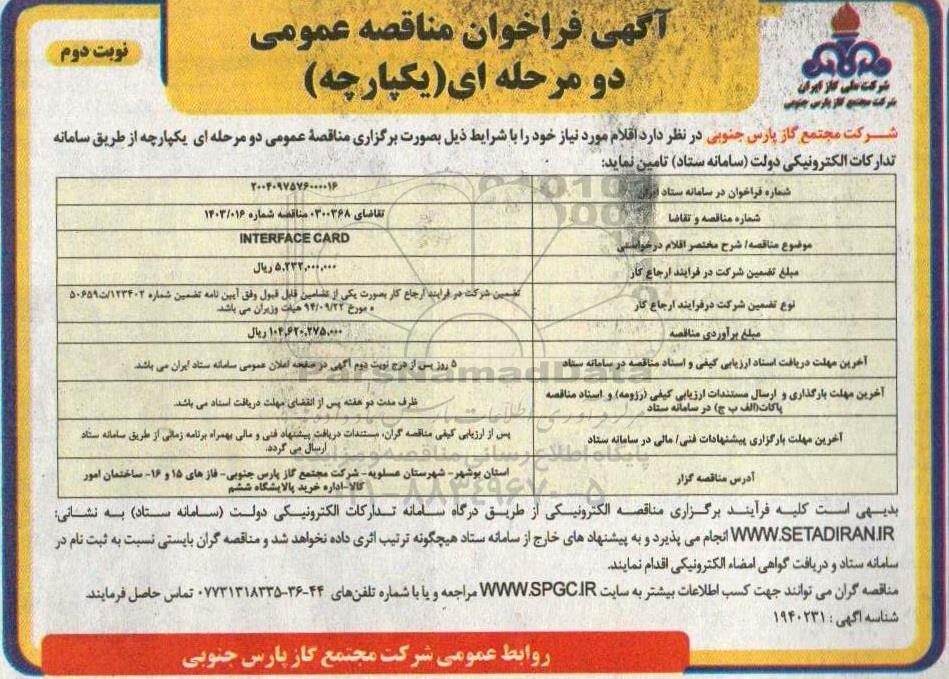 آگهی فراخوان مناقصه عمومی
دو مرحله ای(یکپارچه)
نوبت دوم
شرکت ملی گاز ایران
شرکت مجتمع گاز پارس جنوبی
شرکت مجتمع گاز پارس جنوبی در نظر دارد اقلام مورد نیاز خود را با شرایط ذیل بصورت برگزاری مناقصهٔ عمومی دو مرحله ای یکپارچه از طریق سامانه
تدارکات الکترونیکی دولت (سامانه ستاد) تامین نماید:
شماره فراخوان در سامانه ستاد ایران ۲۰۰۴۰۹۷۵۷۶۰۰۰۰۱۶
شماره مناقصه و تقاضا تقاضای ۰۳۰۰۳۶۸ مناقصه شماره ۱۴۰۳/۰۱۶
موضوع مناقصه/ شرح مختصر اقلام درخواستی INTERFACE CARD
مبلغ تضمین شرکت در فرایند ارجاع کار ۵,۲۳۲,۰۰۰,۰۰۰ ریال
نوع تضمین شرکت درفرایند ارجاع کار تضمین شرکت در فرایند ارجاع کار بصورت یکی از تضامین قابل قبول وفق آیین نامه تضمین شماره ۱۲۳۴۰۲/ت۵۰۶۵۹
ه مورخ ۹۴/۰۹/۲۲ هیئت وزیران می باشد.
مبلغ برآوردی مناقصه ۱۰۴,۶۲۰,۲۷۵,۰۰۰ ریال
آخرین مهلت دریافت اسناد ارزیابی کیفی و اسناد مناقصه در سامانه ستاد ۵ روز پس از درج نوبت دوم آگهی در صفحه اعلان عمومی سامانه ستاد ایران می باشد.
آخرین مهلت بارگذاری و ارسال مستندات ارزیابی کیفی (رزومه) و اسناد مناقصه
پاکات(الف ب ج) در سامانه ستاد ظرف مدت دو هفته پس از انقضای مهلت دریافت اسناد می باشد.
آخرین مهلت بارگزاری پیشنهادات فنی/ مالی در سامانه ستاد پس از ارزیابی کیفی مناقصه گران، مستندات دریافت پیشنهاد فنی و مالی بهمراه برنامه زمانی از طریق سامانه ستاد
ارسال می گردد.
آدرس مناقصه گزار استان بوشهر- شهرستان عسلویه- شرکت مجتمع گاز پارس جنوبی- فاز های ۱۵ و ۱۶- ساختمان امور
کالا-اداره خرید پالایشگاه ششم
ParsNamadData
پایگاه اطلاع رسانی مناقصه و مزایده
۰۲۱-۸۸۳۴۹۶۷۰-۵
بدیهی است کلیه فرآیند برگزاری مناقصه الکترونیکی از طریق درگاه سامانه تدارکات الکترونیکی دولت (سامانه ستاد) به نشانی:
WWW.SETADIRAN.IR انجام می پذیرد و به پیشنهاد های خارج از سامانه ستاد هیچگونه ترتیب اثری داده نخواهد شد و مناقصه گران بایستی نسبت به ثبت نام در
سامانه ستاد و دریافت گواهی امضاء الکترونیکی اقدام نمایند.
مناقصه گران می توانند جهت کسب اطلاعات بیشتر به سایت WWW.SPGC.IR مراجعه و یا با شماره تلفن‌های ۴۴-۳۶-۰۷۷۳۱۳۱۸۳۳۵ تماس حاصل فرمایند.
شناسه آگهی : ۱۹۴۰۲۳۱
روابط عمومی شرکت مجتمع گاز پارس جنوبی